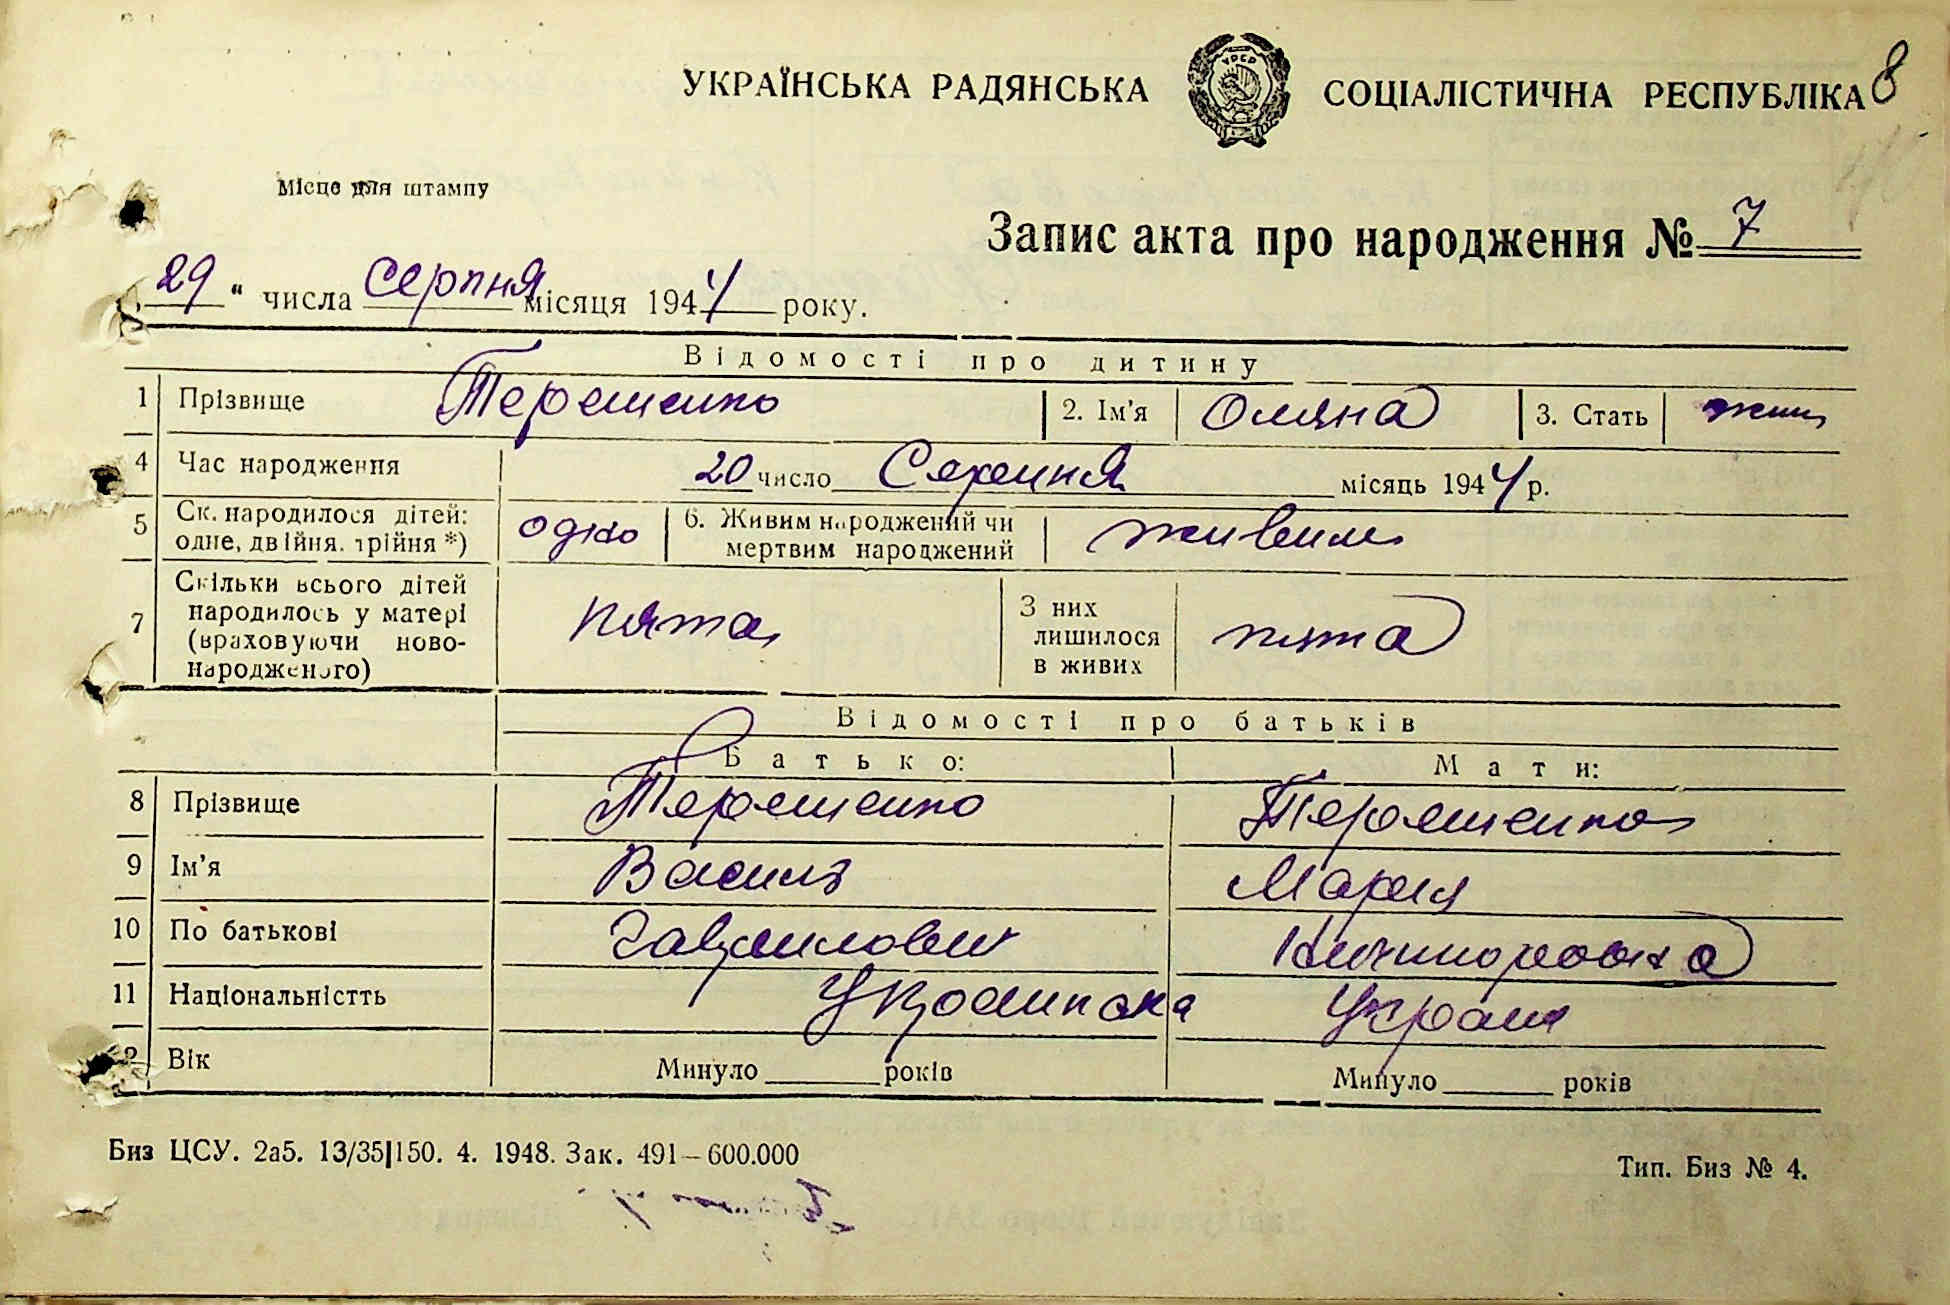 8
УКРАЇНСЬКА РАДЯНСЬКА СОЦІАЛІСТИЧНА РЕСПУБЛІКА
УРСР
Місце для штампу
Запис акта про народження № 7
29 " числа серпня місяця 1944 року.
Відомості про дитину
1 Прізвище Терешенко 2. Ім'я Оляна 3. Стать жин
4 Час народження 20 число Серпня місяць 1944 р.
5 Ск. народилося дітей: одне, двійня, трійня *) одно 6. Живим народжений чи мертвим народжений живим
7 Скільки всього дітей народилось у матері (враховуючи ново-народженого) пята З них лишилося в живих пята
Відомості про батьків
Батько: Мати:
8 Прізвище Терешенко Терешенко
9 Ім'я Василь Мария
10 По батькові Гаврилович
11 Національністть Українка Украин
Вік Минуло років Минуло років
Биз ЦСУ. 2а5. 13/35|150. 4. 1948. Зак. 491—600.000 Тип. Биз № 4.